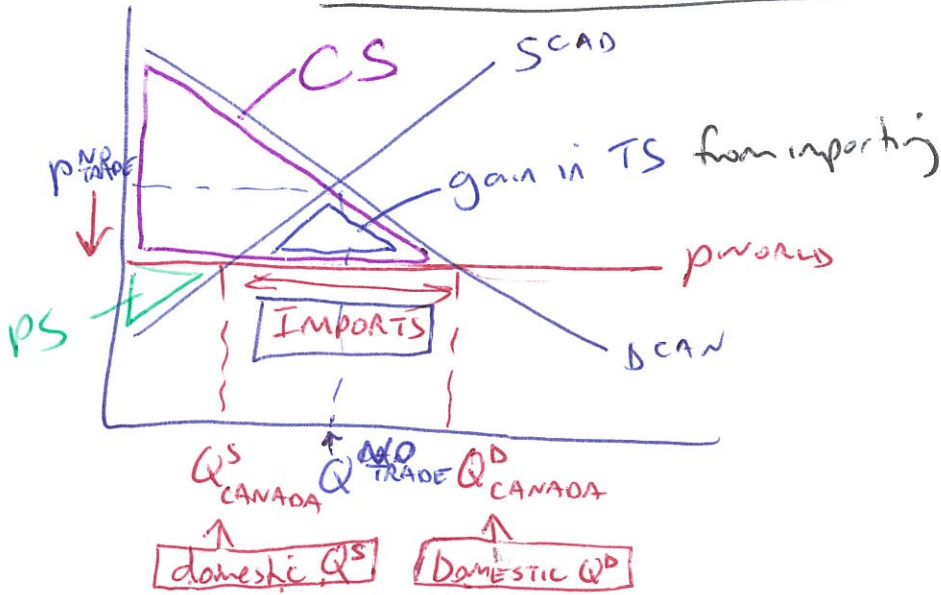 CS
SCAD
gain in TS from importing
P NO TRADE
PWORLD
PS
IMPORTS
DCAN
Q S CANADA
Q NO TRADE
Q D CANADA
domestic QS
DOMESTIC QD